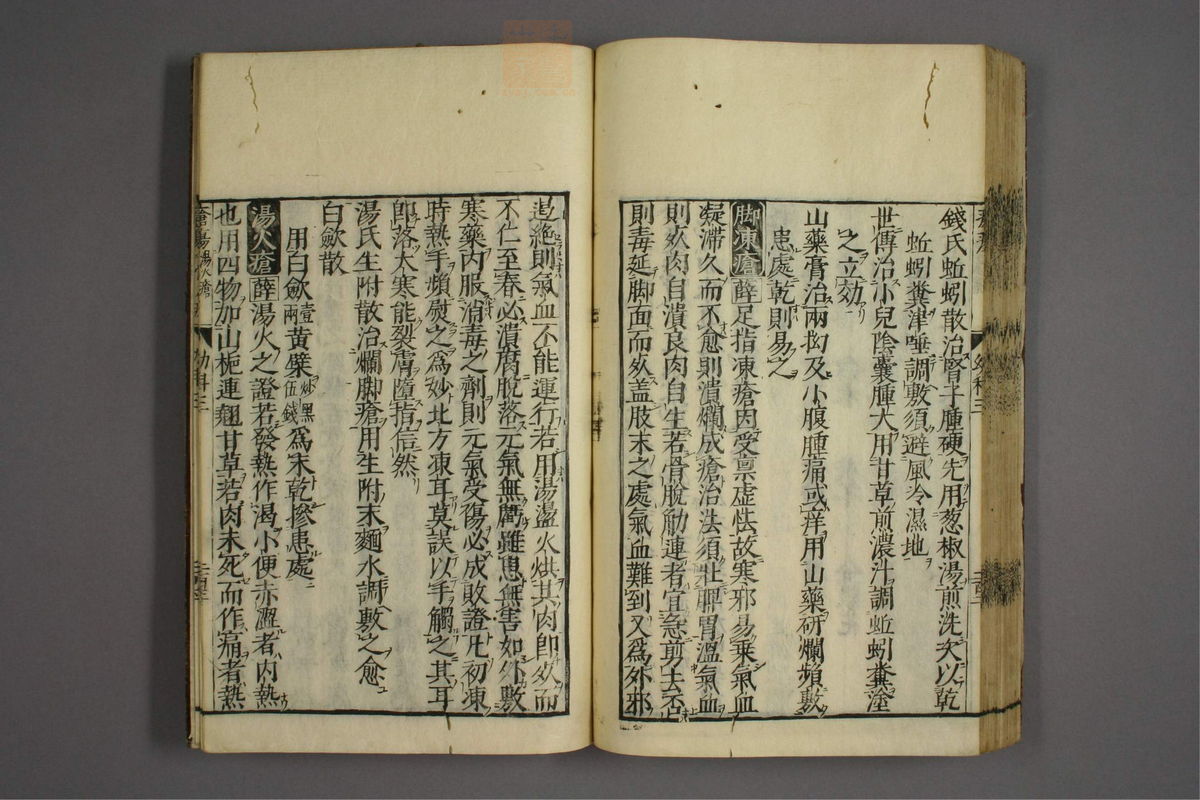 錢氏蚯蚓散治腎子腫硬先用葱椒湯煎洗次以乾
蚯蚓糞津唾調敷須避風冷濕地
世傳治小兒陰囊腫大用甘草煎濃汁調蚯蚓糞塗
之立効
山藥膏治兩拗及小腹腫痛或痒用山藥研爛頻敷
患處乾則易之
脚凍瘡薛足指凍瘡因受禀虛怯故寒邪易乗氣血
凝滞久而不愈則潰爛成瘡治法須壯脾胃溫氣血
則𣧑肉自潰良肉自生若骨脫觔連者宜急剪去否
則毒延脚面而𣧑盖肢末之處氣血難到又爲外邪
遏絶則氣血不能運行若用湯盪火烘其肉卽𣧑而
不仁至春必潰腐脫落元氣無虧雖患無害如外敷
寒藥内服消毒之劑則元氣受傷必成敗證凡初凍
時熱手頻熨之爲妙北方凍耳莫誤以手觸之其耳
卽落大寒能裂膚墮指信然
湯氏生附散治爛脚瘡用生附末麵水調敷之愈
白歛散
用白歛壹兩黃檗炒黑伍錢爲末乾摻患處
湯火瘡薛湯火之證若發熱作渴小便赤澀者内熱
也用四物加山梔連翹甘草若肉未死而作痛者熱